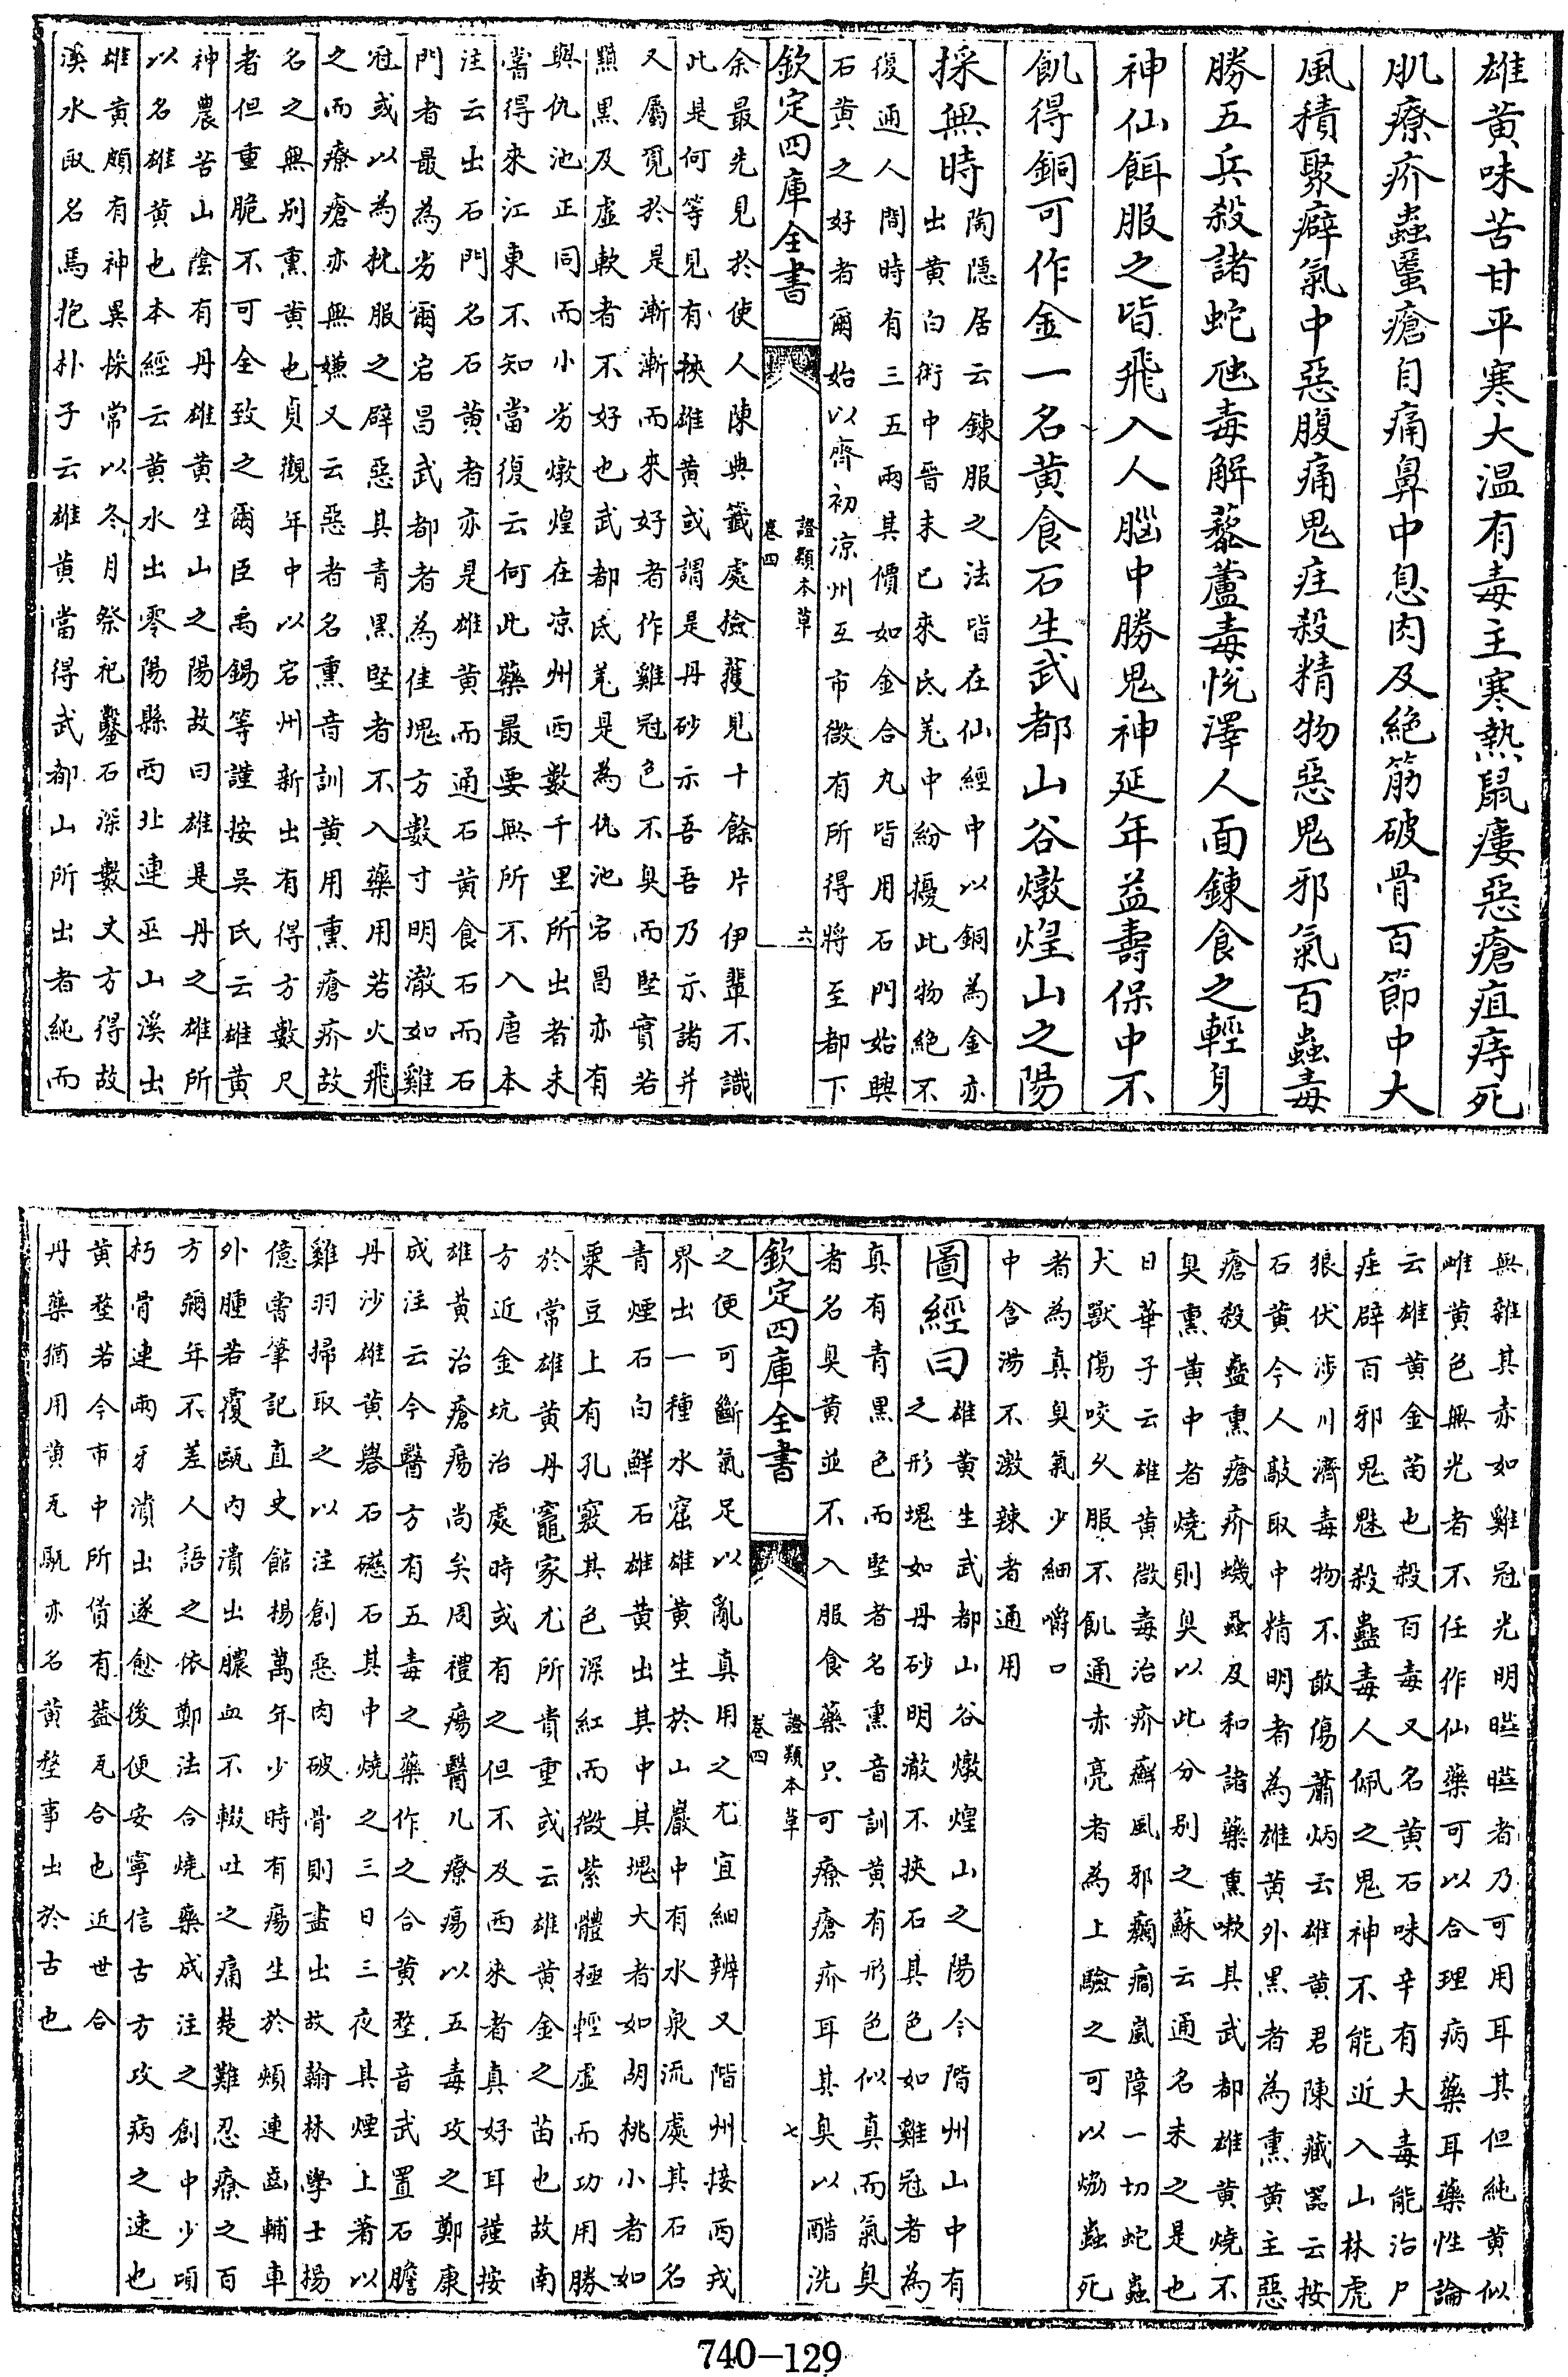 雄黄味苦甘平寒大温有毒主寒熱鼠瘻惡瘡疽痔死
肌療疥蟲䘌瘡目痛鼻中息肉及絶筋破骨百節中大
風積聚癖氣中惡腹痛鬼疰殺精物惡鬼邪氣百蟲毒
勝五兵殺諸蛇虺毒解藜蘆毒悦澤人面鍊食之輕身
神仙餌服之皆飛入人腦中勝鬼神延年益壽保中不
飢得銅可作金一名黄食石生武都山谷燉煌山之陽
採無時
陶隱居云鍊服之法皆在仙經中以銅為金亦
出黄白術中晉末已來氐羌中紛擾此物絶不
復通人間時有三五兩其價如金合丸皆用石門始興
石黄之好者爾始以齊初凉州互市微有所得將至都下
欽定四庫全書
證類本草
卷四
六
余最先見於使人陳典籤處撿獲見十餘片伊輩不識
此是何等見有挾雄黄或謂是丹砂示吾吾乃示諸并
又屬覓於是漸漸而來好者作雞冠色不臭而堅實若
黯黑及虛軟者不好也武都氐羌是為仇池宕昌亦有
與仇池正同而小劣燉煌在凉州西數千里所出者未
嘗得來江東不知當復云何此藥最要無所不入唐本
注云出石門名石黄者亦是雄黄而通石黄食石而石
門者最為劣爾宕昌武都者為佳塊方數寸明澈如雞
冠或以為枕服之辟惡其青黑堅者不入藥用若火飛
之而療瘡亦無嫌又云惡者名熏音訓黄用熏瘡疥故
名之無别熏黄也貞觀年中以宕州新出有得方數尺
者但重脆不可全致之爾臣禹錫等謹按吳氏云雄黄
神農苦山陰有丹雄黄生山之陽故曰雄是丹之雄所
以名雄黄也本經云黄水出零陽縣西北連巫山溪出
雄黄頗有神異採常以冬月祭祀鑿石深數丈方得故
溪水取名焉抱朴子云雄黄當得武都山所出者純而
無雜其赤如雞冠光明曄曄者乃可用耳其但純黄似
雌黄色無光者不任作仙藥可以合理病藥耳藥性論
云雄黄金苗也殺百毒又名黄石味辛有大毒能治尸
疰辟百邪鬼魅殺蠱毒人佩之鬼神不能近入山林虎
狼伏涉川濟毒物不敢傷蕭炳云雄黄君陳藏器云按
石黄今人敲取中精明者為雄黄外黑者為熏黄主惡
瘡殺蟲熏瘡疥蟣蝨及和諸藥熏嗽其武都雄黄燒不
臭熏黄中者燒則臭以此分别之蘇云通名未之是也
日華子云雄黄微毒治疥癬風邪癲癎嵐障一切蛇蟲
犬獸傷咬久服不飢通赤亮者為上驗之可以熁蟲死
者為真臭氣少細嚼口
中含湯不激辣者通用
圖經曰
雄黄生武都山谷燉煌山之陽今階州山中有
之形塊如丹砂明澈不挾石其色如雞冠者為
真有青黑色而堅者名熏音訓黄有形色似真而氣臭
者名臭黄並不入服食藥只可療瘡疥耳其臭以醋洗
欽定四庫全書
證類本草
卷四
七
之便可斷氣足以亂真用之尤宜細辨又階州接西戎
界出一種水窟雄黄生於山巖中有水泉流處其石名
青煙石白鮮石雄黄出其中其塊大者如胡桃小者如
粟豆上有孔竅其色深紅而微紫體極輕虛而功用勝
於常雄黄丹竈家尤所貴重或云雄黄金之苗也故南
方近金坑治處時或有之但不及西來者真好耳謹按
雄黄治瘡瘍尚矣周禮瘍醫凡療瘍以五毒攻之鄭康
成注云今醫方有五毒之藥作之合黄堥音武置石膽
丹沙雄黄礜石磁石其中燒之三日三夜其煙上著以
雞羽掃取之以注創惡肉破骨則盡出故翰林學士楊
億嘗筆記直史館楊萬年少時有瘍生於頰連齒輔車
外腫若覆甌内潰出膿血不輟吐之痛楚難忍療之百
方彌年不差人語之依鄭法合燒藥成注之創中少頃
朽骨連兩牙潰出遂愈後便安寧信古方攻病之速也
黄堥若今市中所貨有蓋瓦合也近世合
丹藥猶用黄瓦甌亦名黄堥事出於古也
740—129